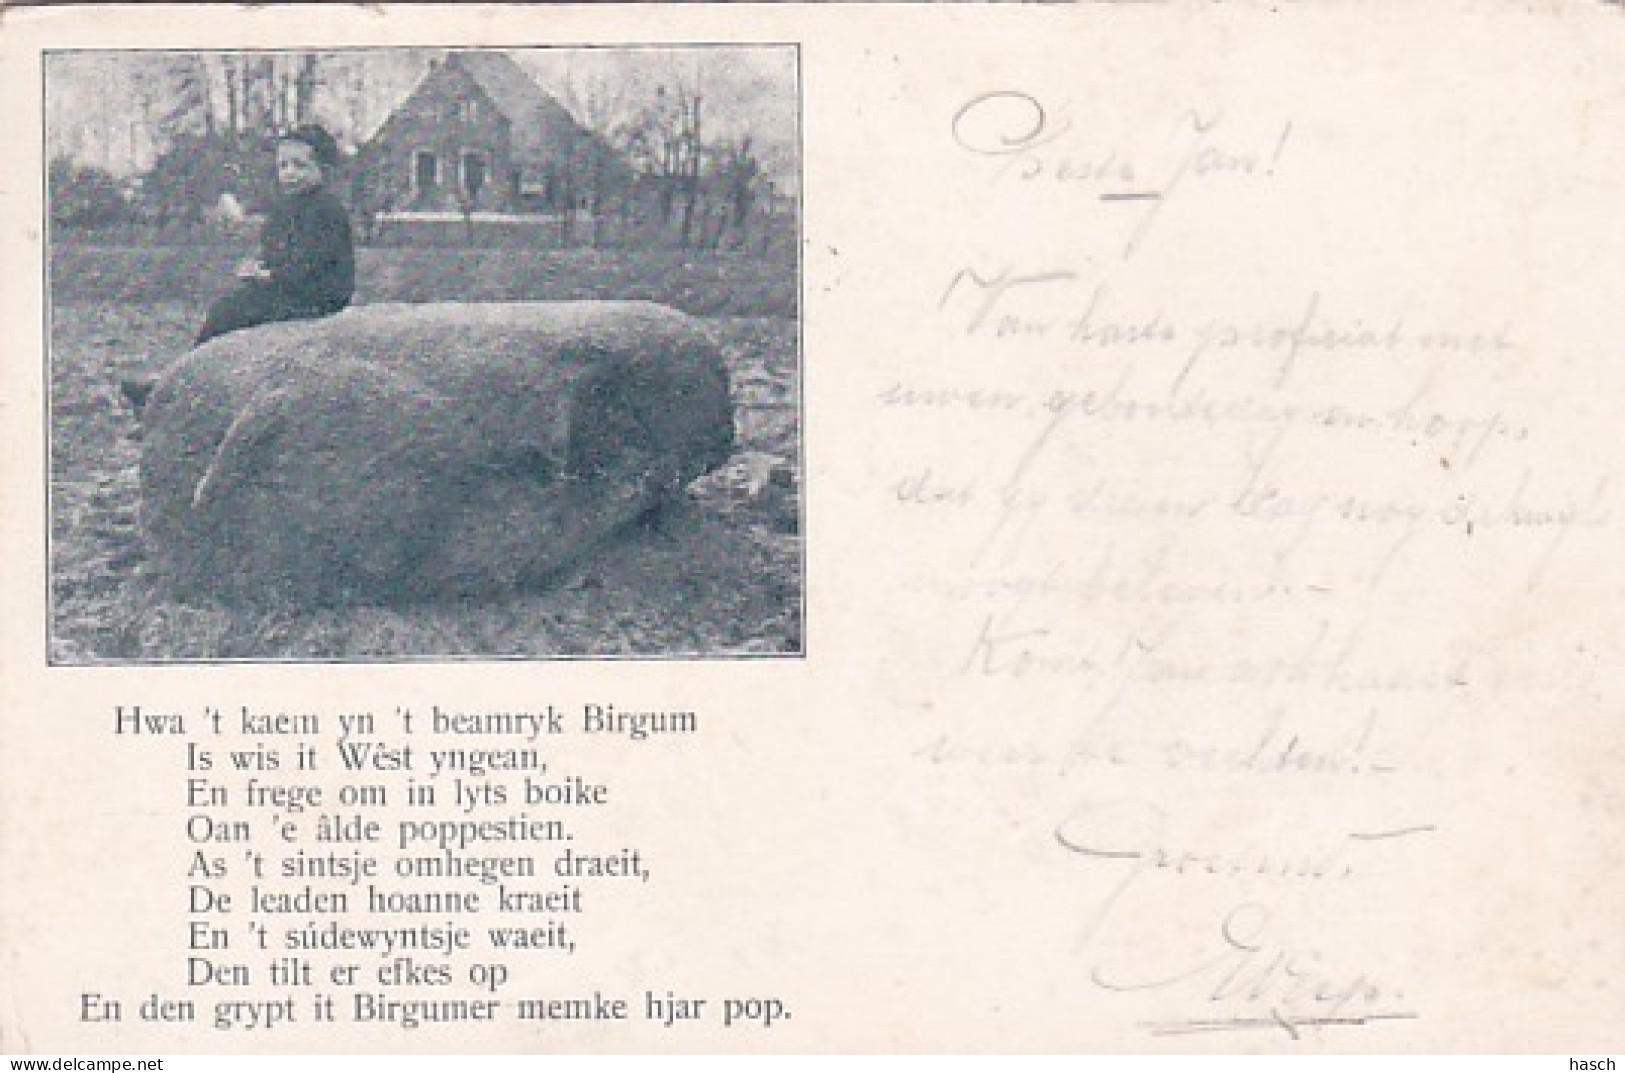 Hwa 't kaem yn 't beamryk Birgum
Is wis it Wêst yngean,
En frege om in lyts boike
Oan 'e âlde poppestien.
As 't sintsje omhegen draeit,
De leaden hoanne kraeit
En 't súdewyntsje waeit,
Den tilt er efkes op
En den grypt it Birgumer memke hjar pop.
Beste Jan!
Van harte proficiat met
uwen geboortedag en hoop,
dat gy dezen dag nog
moogt beleven.-
Kom Jan
Groetend.
www.delcampe.net
hasch